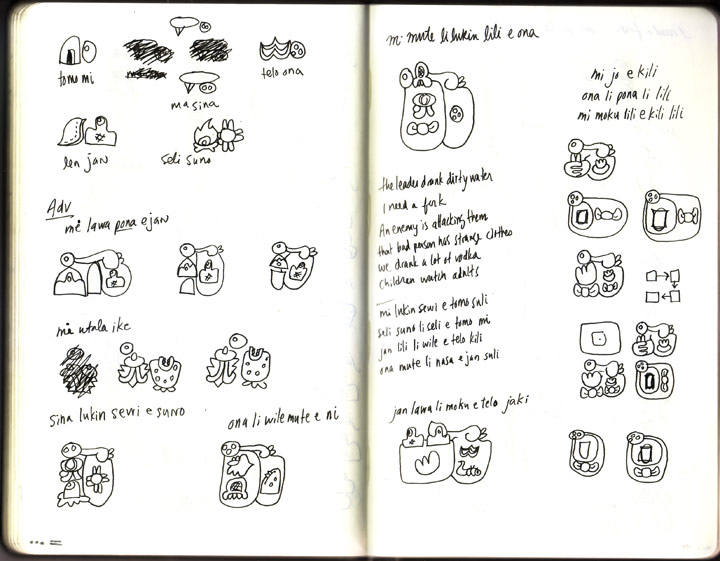 tomo mi
ma sina
telo ona
len jan
seli suno
Adv
mi lawa pona e jan
mi utala ike
sina lukin sewi e suno
ona li wile mute e ni
mi mute li lukin lili e ona
mi jo e kili
ona li pona li lili
mi moku lili e kili lili
the leader drank dirty water
I need a fork
An enemy is attacking them
that bad person has strange clothes
we drank a lot of vodka
children watch adults
mi lukin sewi e tomo suli
seli suno li seli e tomo mi
jan lili li wile e telo kili
ona mute li nasa e jan suli
jan lawa li moku e telo jaki